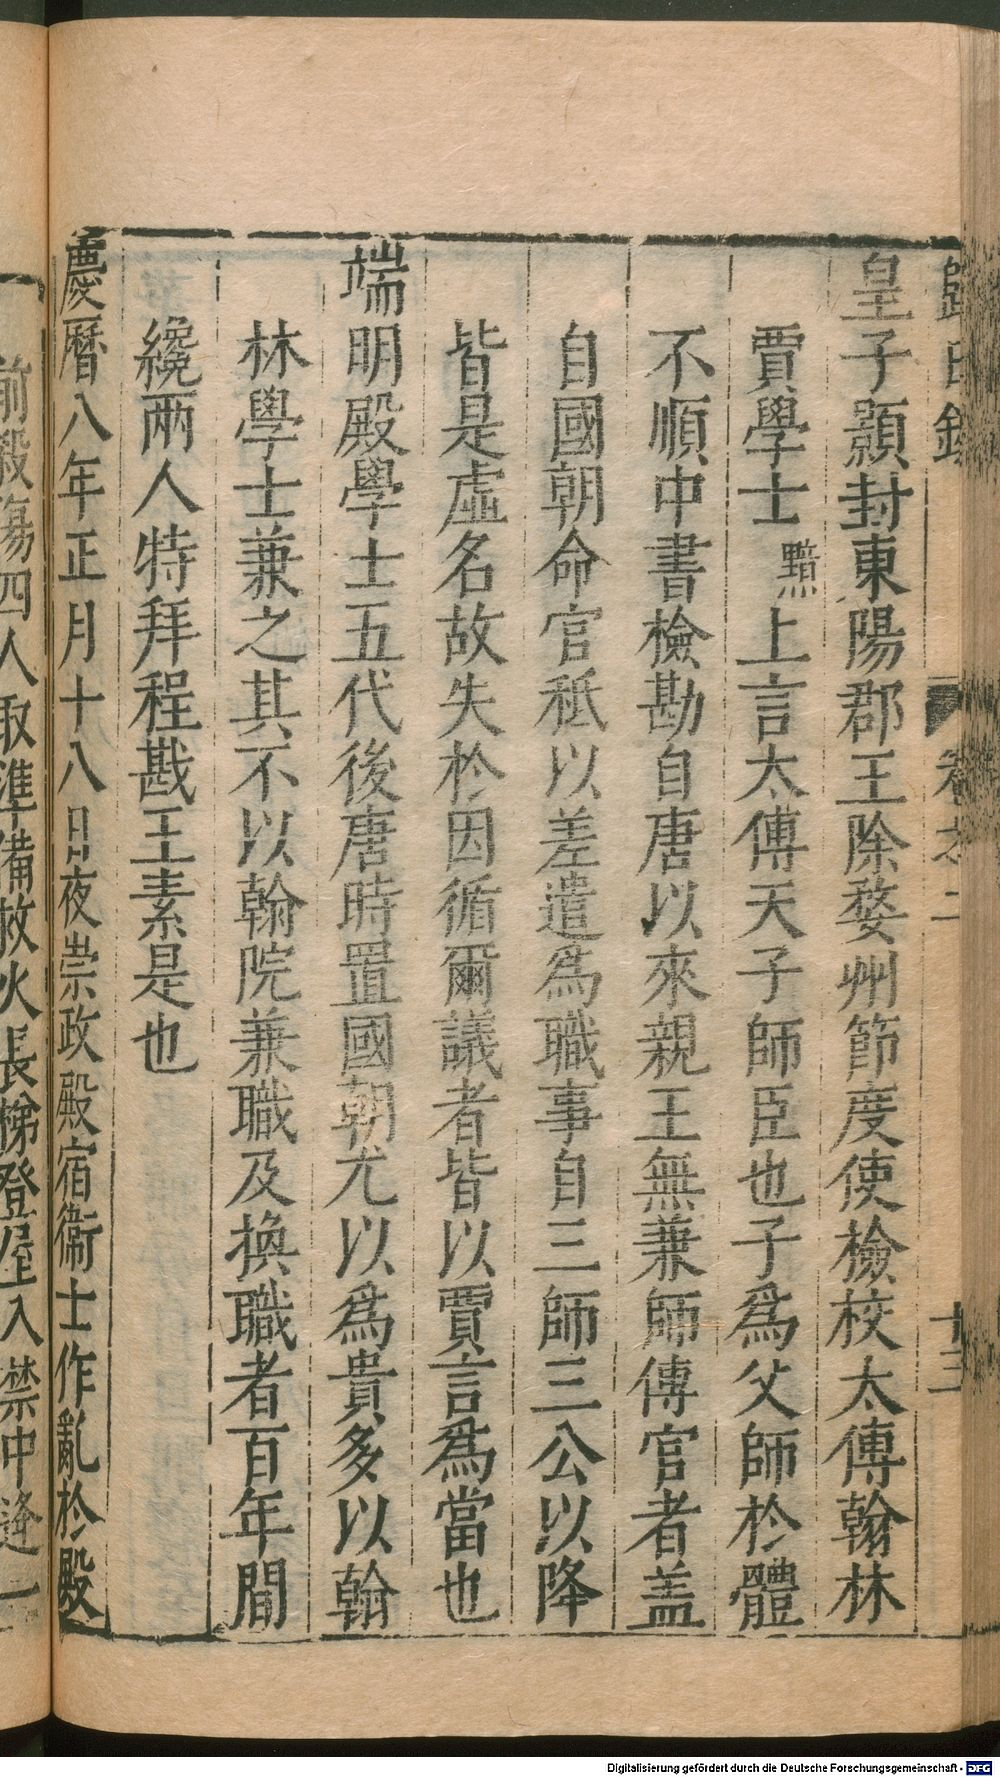 歸田錄 卷之二 十三
皇子顥封東陽郡王除婺州節度使檢校太傅翰林
賈學士黯上言太傅天子師臣也子爲父師於體
不順中書檢勘自唐以來親王無兼師傅官者盖
自國朝命官秪以差遣爲職事自三師三公以降
皆是虛名故失於因循爾議者皆以賈言爲當也
端明殿學士五代後唐時置國朝尤以爲貴多以翰
林學士兼之其不以翰院兼職及換職者百年間
纔兩人特拜程戡王素是也
慶曆八年正月十八日夜崇政殿宿衞士作亂於殿
前殺傷四人取準備救火長梯登屋入禁中逢一
Digitalisierung gefördert durch die Deutsche Forschungsgemeinschaft - DFG